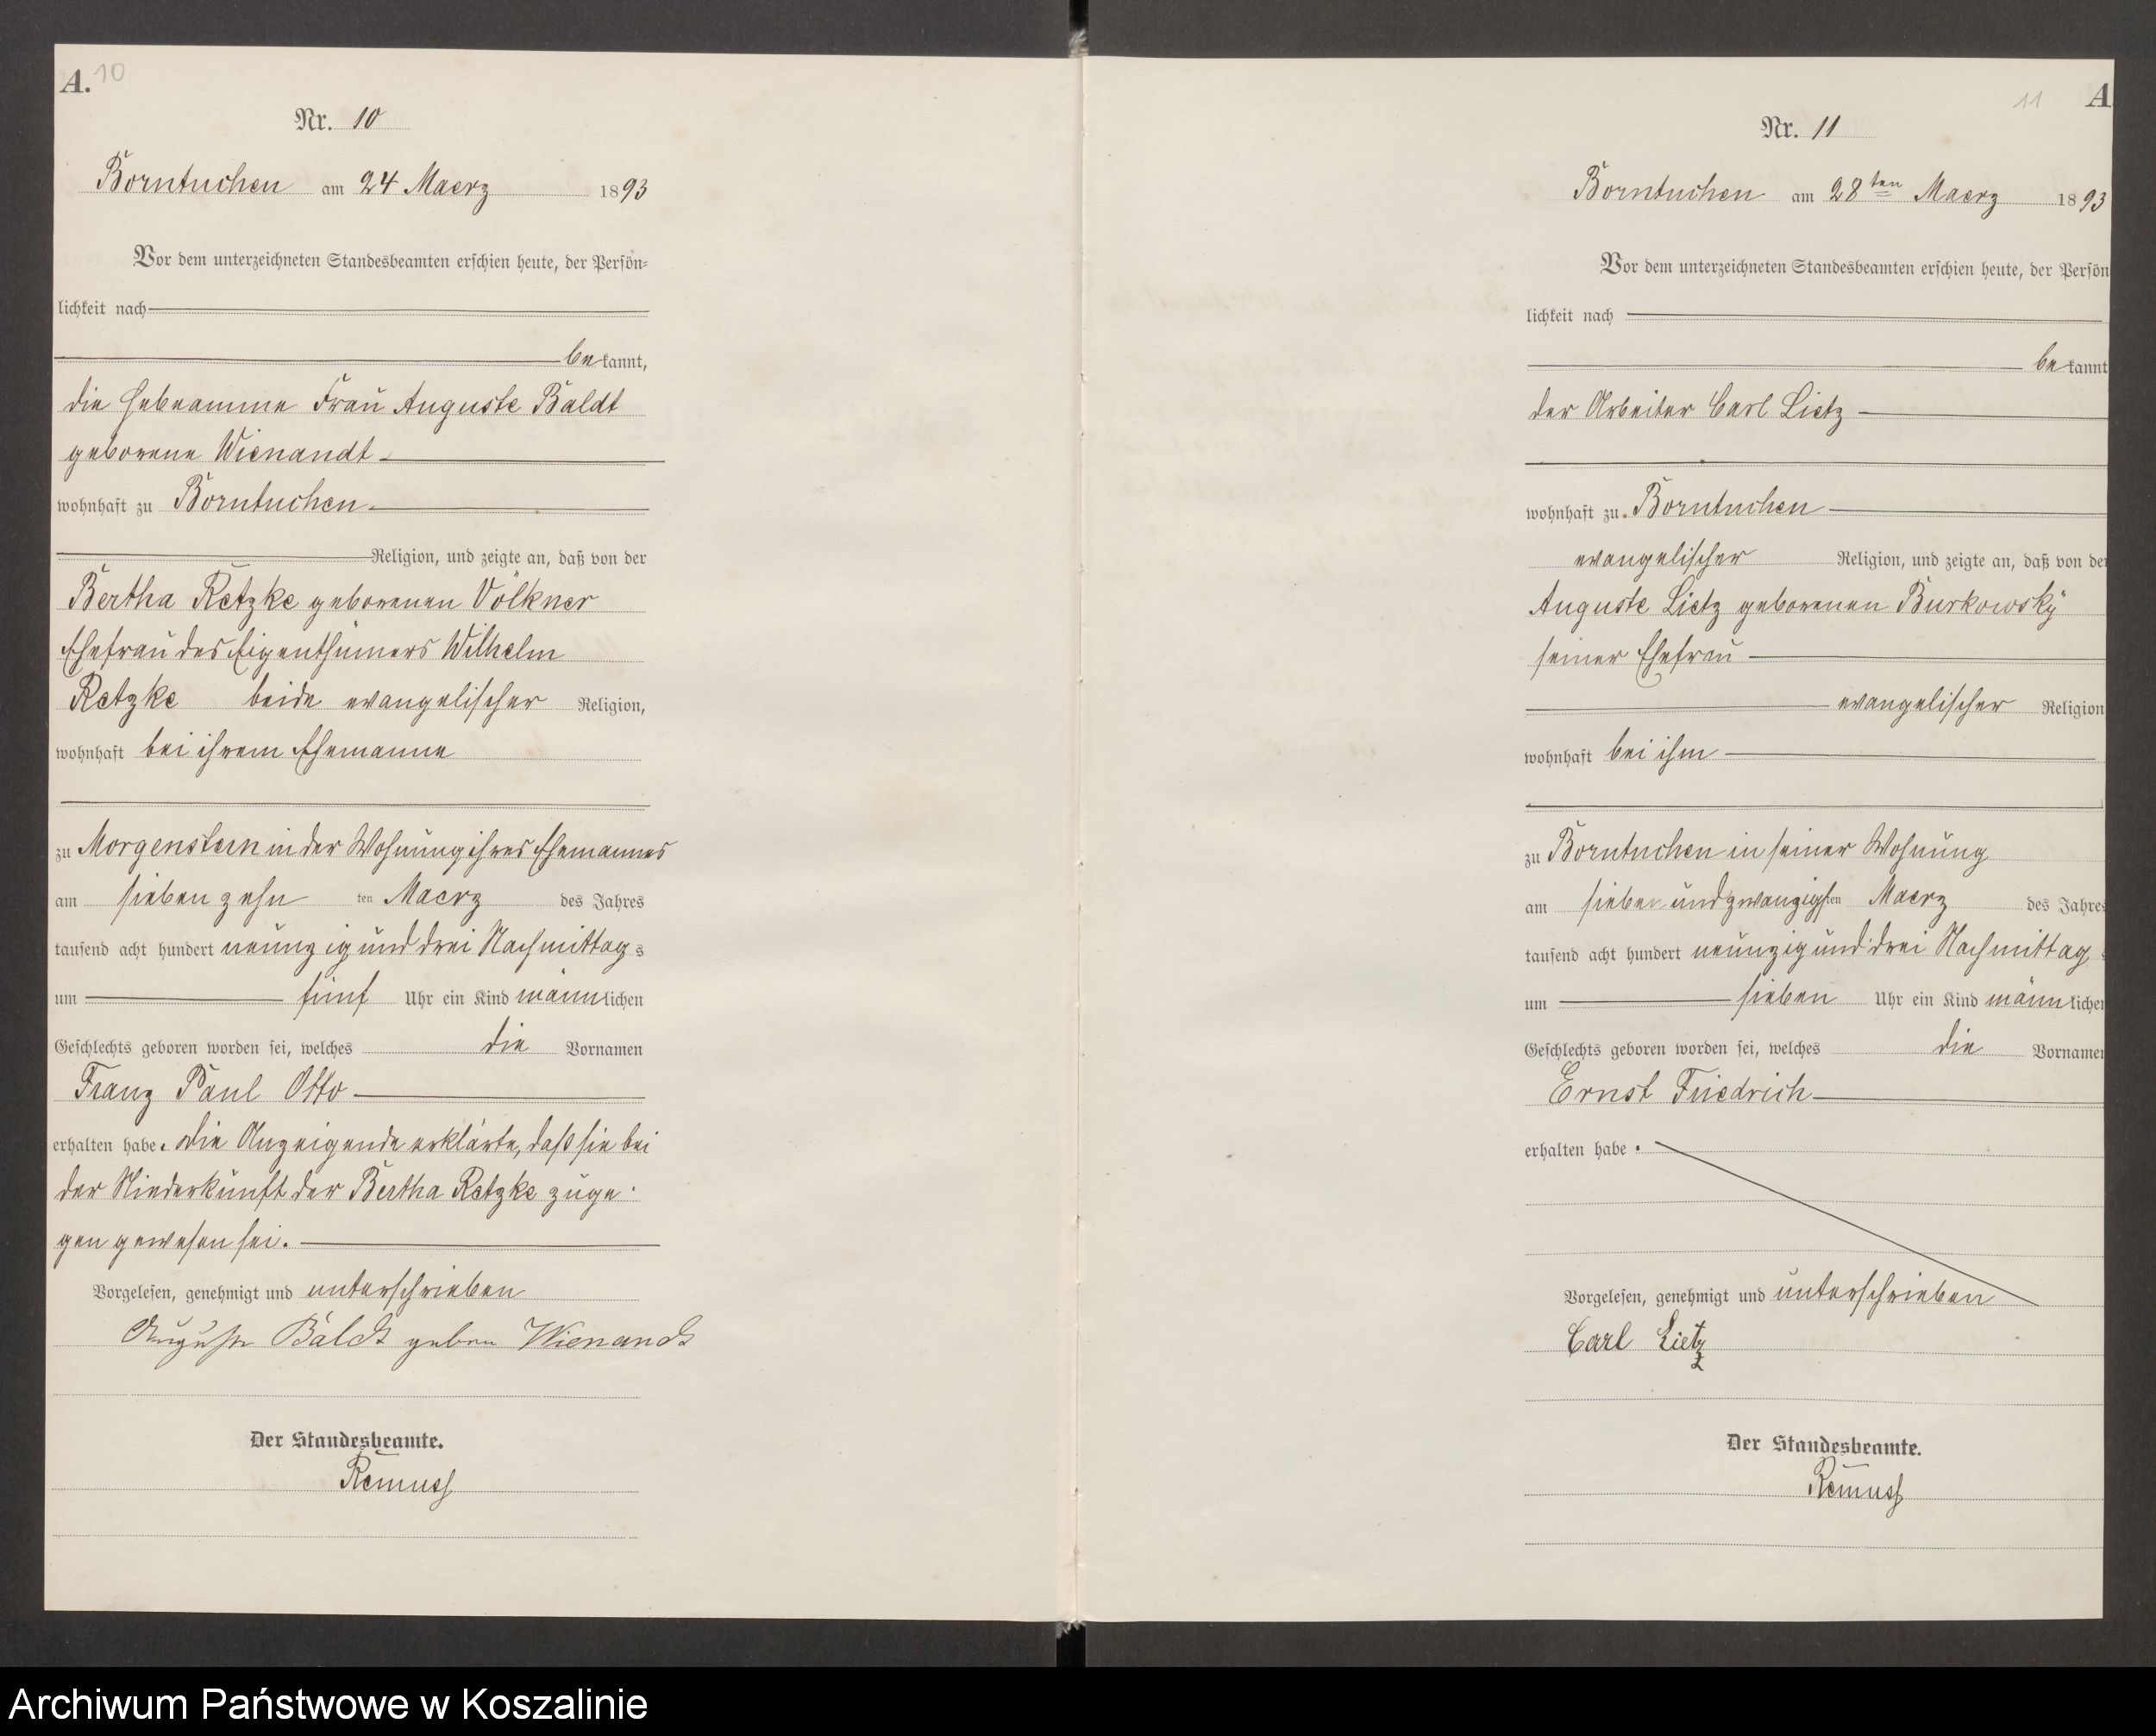 A. 10
Nr. 10
Borntuchen am 24 Maerz 1893
Vor dem unterzeichneten Standesbeamten erschien heute, der Persön-
lichkeit nach
bekannt,
die Hebeamme Frau Auguste Baldt
geborene Wienandt
wohnhaft zu Borntuchen
Religion, und zeigte an, daß von der
Bertha Retzke geborenen Völkner
Ehefrau des Eigenthümers Wilhelm
Retzke beide evangelischer Religion,
wohnhaft bei ihrem Ehemanne
zu Morgenstern in der Wohnung ihres Ehemannes
am siebenzehn ten Maerz des Jahres
tausend acht hundert neunzig und drei Nachmittags
um fünf Uhr ein Kind männlichen
Geschlechts geboren worden sei, welches die Vornamen
Franz Paul Otto
erhalten habe. Die Anzeigende erklärte, daß sie bei
der Niederkunft der Bertha Retzke zuge-
gen gewesen sei.
Vorgelesen, genehmigt und unterschrieben
Auguste Baldt geboren Wienandt
Der Standesbeamte.
Remuss
11 A
Nr. 11
Borntuchen am 28ten Maerz 1893
Vor dem unterzeichneten Standesbeamten erschien heute, der Persön
lichkeit nach
bekannt
der Arbeiter Carl Lietz
wohnhaft zu Borntuchen
evangelischer Religion, und zeigte an, daß von der
Auguste Lietz geborenen Burkowsky
seiner Ehefrau
evangelischer Religion
wohnhaft bei ihm
zu Borntuchen in seiner Wohnung
am sieben und zwanzigsten Maerz des Jahres
tausend acht hundert neunzig und drei Nachmittags
um sieben Uhr ein Kind männlichen
Geschlechts geboren worden sei, welches die Vornamen
Ernst Friedrich
erhalten habe.
Vorgelesen, genehmigt und unterschrieben
Carl Lietz
Der Standesbeamte.
Remuss
Archiwum Państwowe w Koszalinie